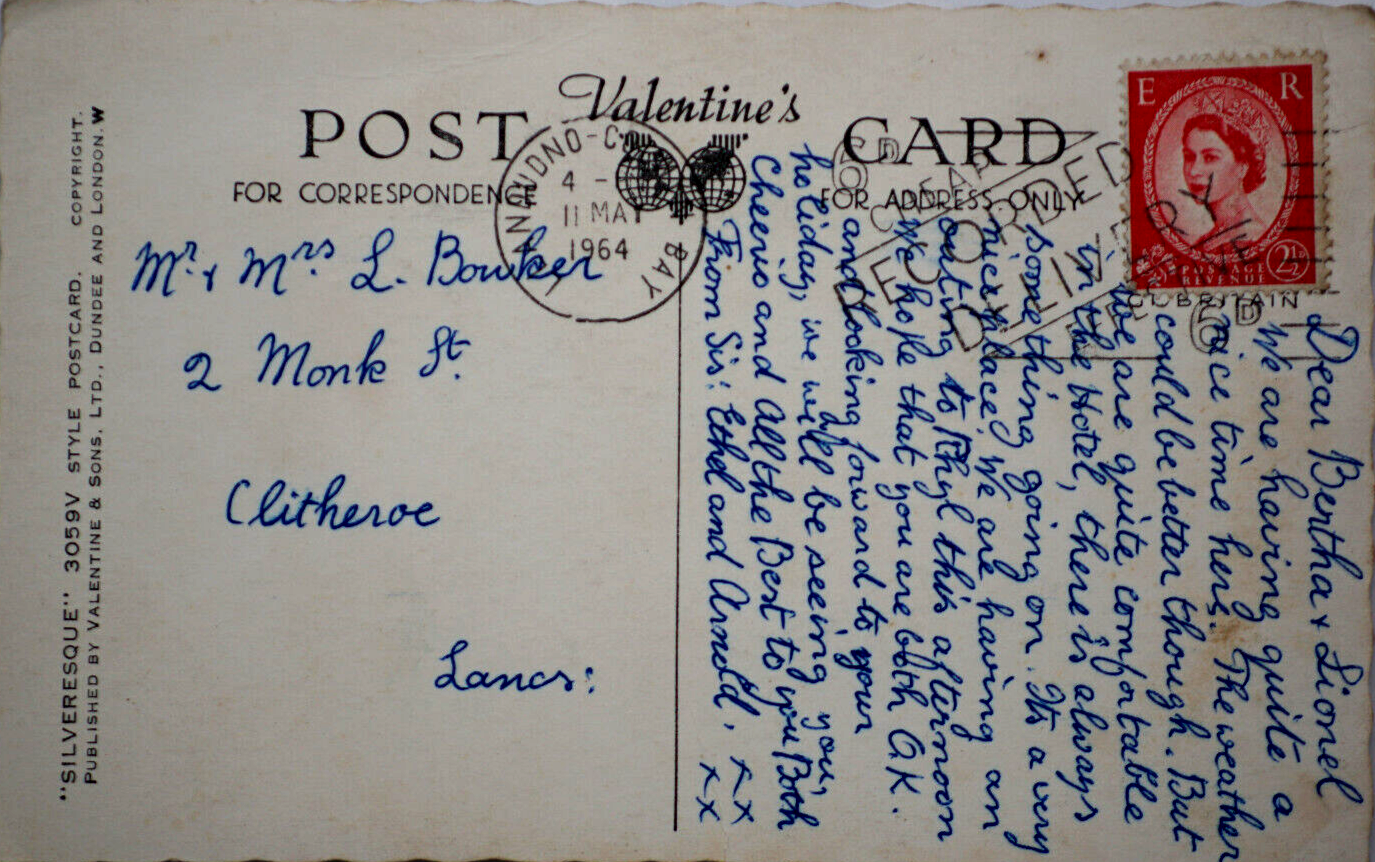 Valentine's
POST CARD
FOR CORRESPONDENCE
FOR ADDRESS ONLY
LLANDUDNO-COLWYN BAY
4 -
11 MAY
1964
6D
RECORDED
DELIVERY
6D
E R
POSTAGE
REVENUE
2½
GT. BRITAIN
Mr. & Mrs L. Bowker
2 Monk St.
Clitheroe
Lancs:
Dear Bertha & Lionel
We are having quite a
nice time here. The weather
could be better though. But
we are quite comfortable
in the Hotel, there is always
something going on. It's a very
nice place, we are having an
outing to Rhyl this afternoon
We hope that you are both O.K.
and looking forward to your
holiday, we will be seeing you,
Cheerio and All the Best to you Both
From Sis: Ethel and Arnold. xx
xx
"SILVERESQUE" 3059V STYLE POSTCARD. COPYRIGHT.
PUBLISHED BY VALENTINE & SONS, LTD., DUNDEE AND LONDON. W